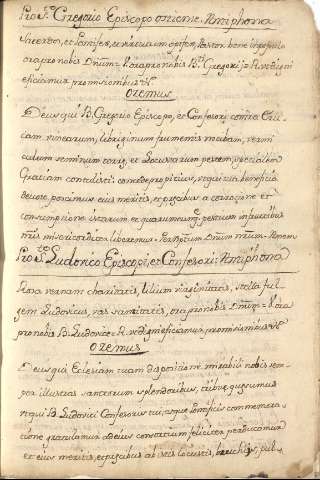 Pro S.to Gregorio Episcopo ostiense Antiphona
Sacerdos, et Pontifex, et virtutum opifex, Pastor bone in populo
ora pro nobis Dnum= V. ora pro nobis B.te Gregori = R. ut digni
efficiamur promissionibus &
Oremus
Deus qui B. Gregorio Episcopo, et Confesori contra Bru-
cam vinearum,
culum seminum, et Locustarum pestem specialem
Gratiam contulisti: concede propitius, ut qui tua beneficia
devote poscimus eius meritis, et precibus a corrosione et
consumptione istarum et quarumcumque pestium in fructibus
nris misericorditer liberemur. Per xptum Dnum nrum. Amen
Pro S.to Ludovico Episcopo, et Confesori: Antiphona
Rosa vernans charitatis, lilium virginitatis, stella ful-
gens Ludovicus, vas sanctitatis, ora pro nobis Dnum= V. ora
pro nobis B. Ludovice R. ut digni efficiamur promissionibus &
Oremus
Deus qui Eclesiam tuam dispositione mirabili nobis sem-
per illustras sanctorum splendoribus, tribue quesumus
ut qui B. Ludovici Confesoris tui, atque Pontificis commemora-
tione gratulamur ad eius consortium feliciter perducamur
et eius meritis, et precibus ab istis locustis, bruchis,